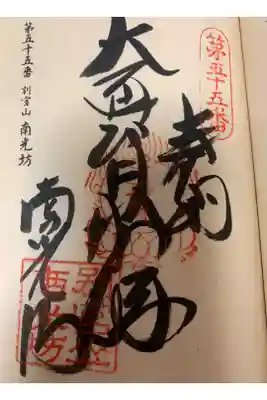 第五十五番
奉納
大通智勝佛
南光坊
第五十五番 別宮山 南光坊